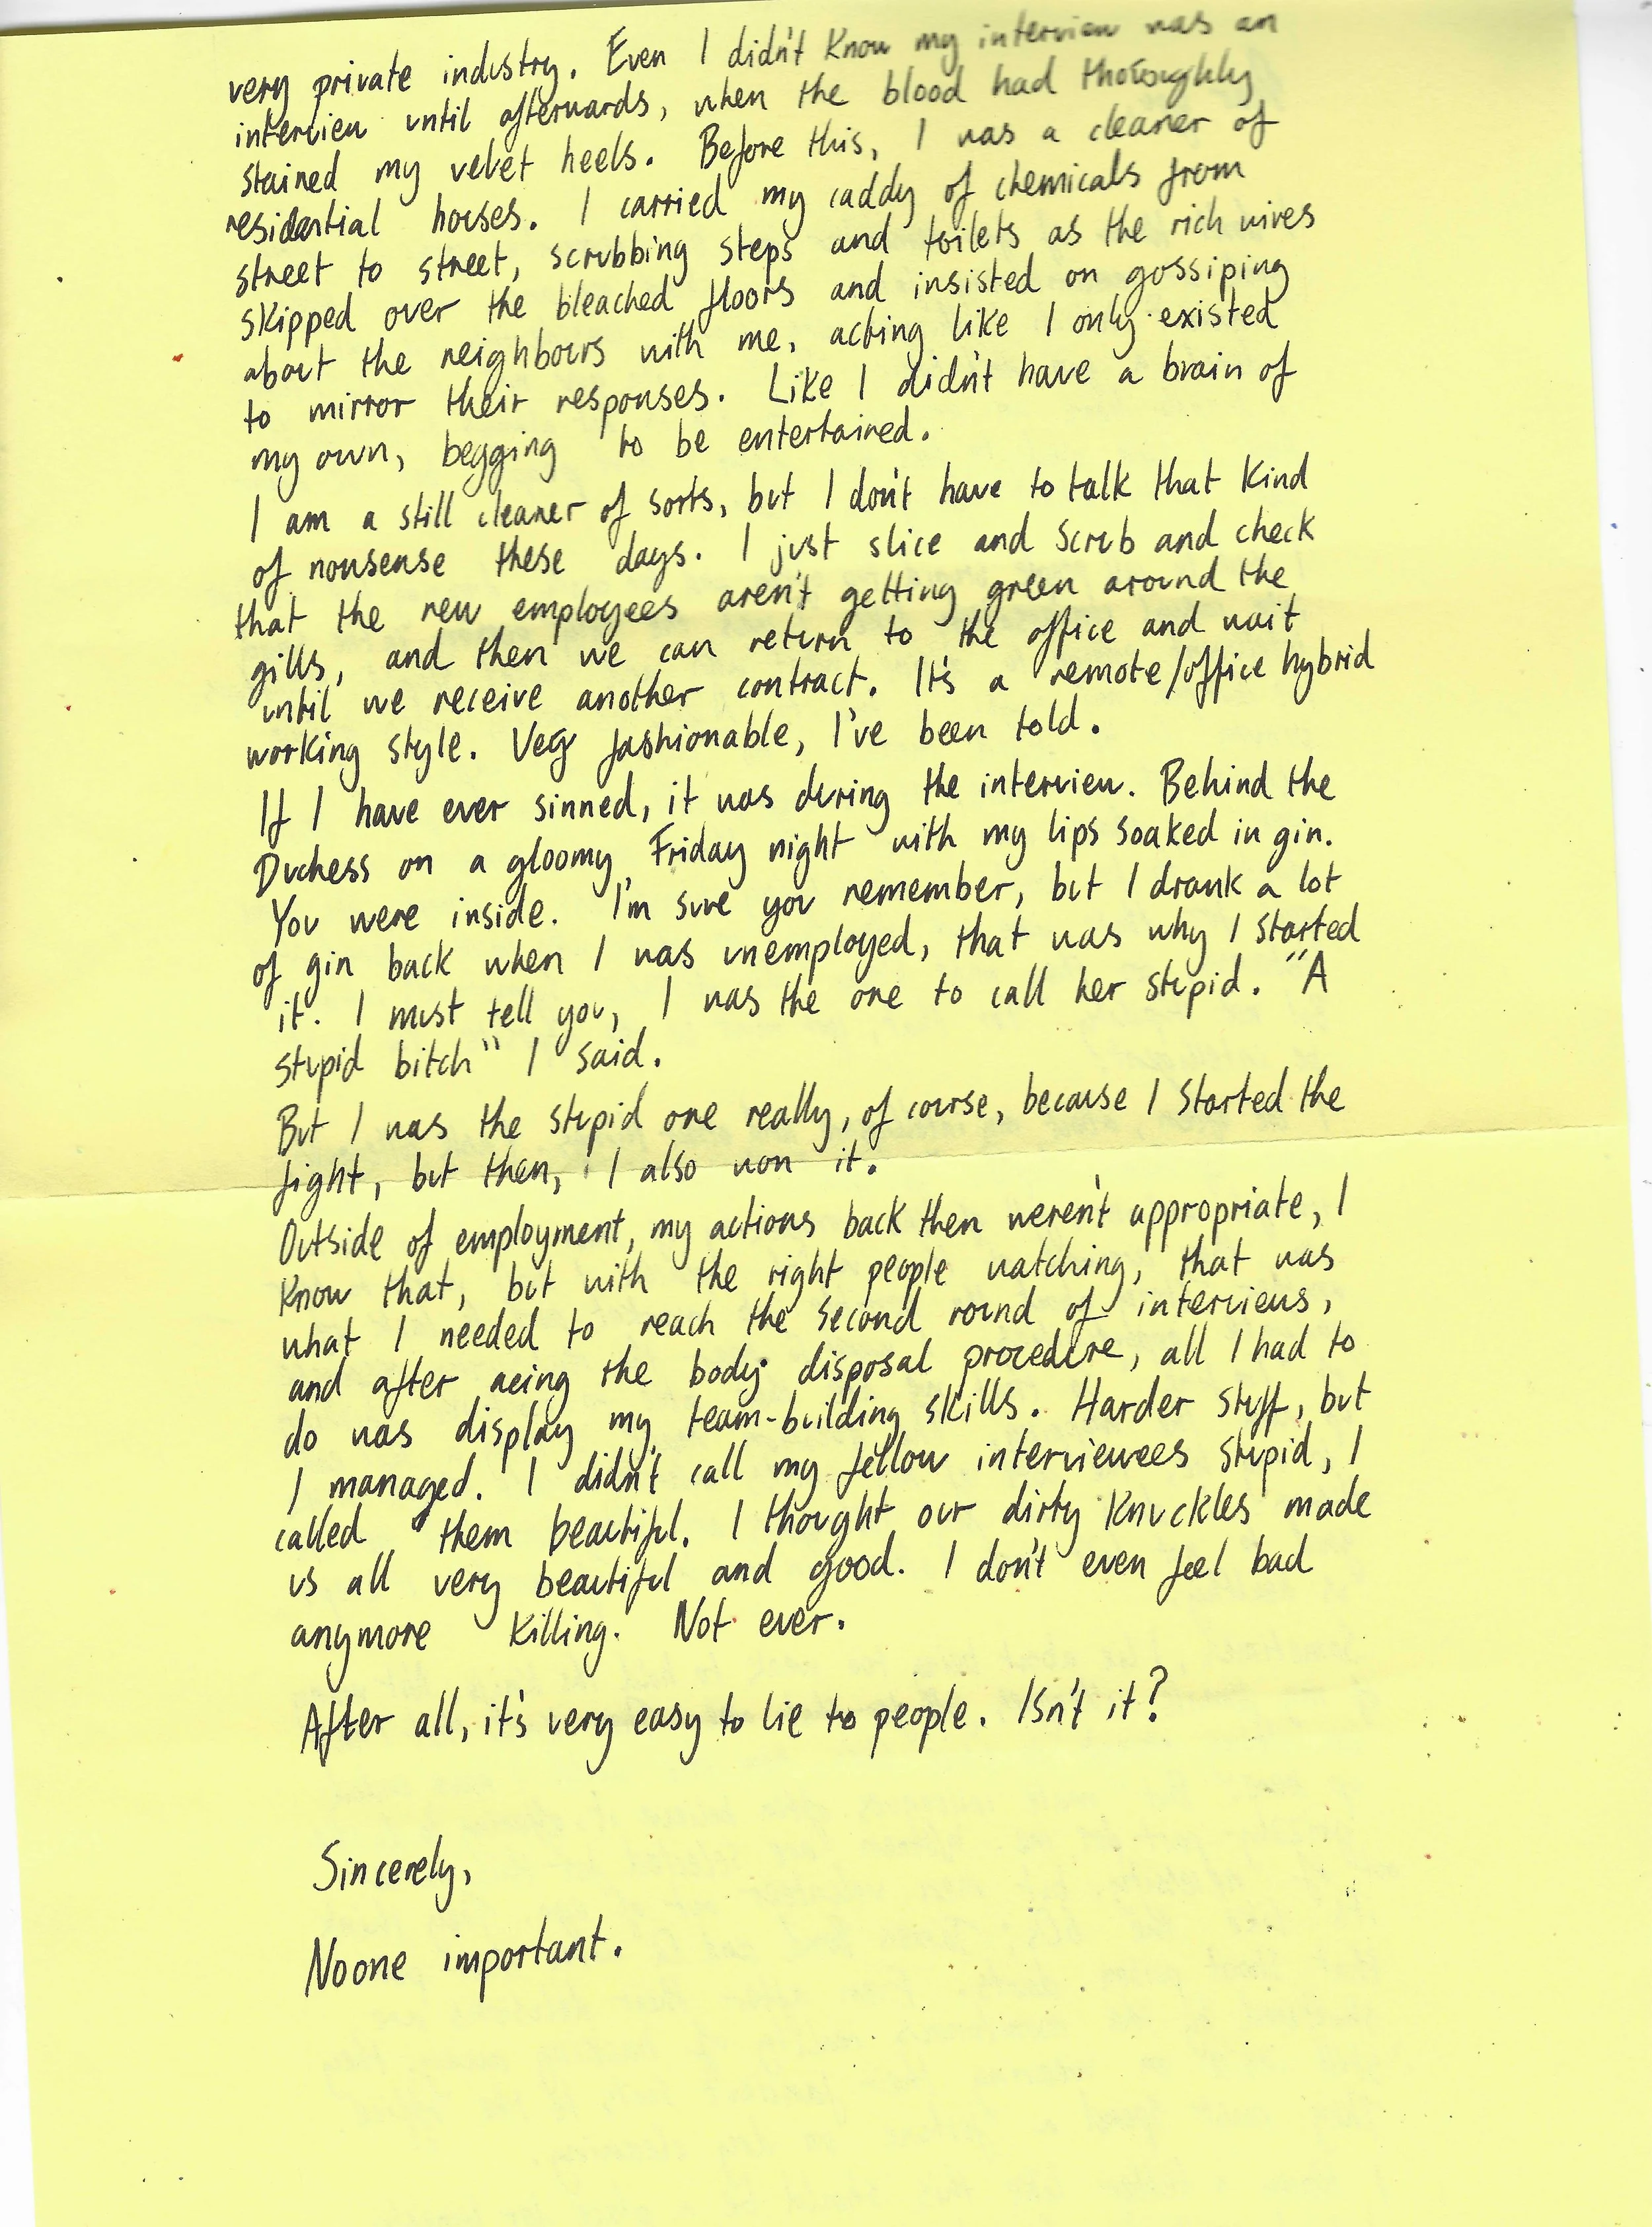 very private industry. Even I didn't know my interview was an
interview until afterwards, when the blood had thoroughly
stained my velvet heels. Before this, I was a cleaner of
residential houses. I carried my caddy of chemicals from
street to street, scrubbing steps and toilets as the rich wives
skipped over the bleached floors and insisted on gossiping
about the neighbours with me, acting like I only existed
to mirror their responses. Like I didn't have a brain of
my own, begging to be entertained.
I am a still cleaner of sorts, but I don't have to talk that kind
of nonsense these days. I just slice and scrub and check
that the new employees aren't getting green around the
gills, and then we can return to the office and wait
until we receive another contract. It's a remote/office hybrid
working style. Very fashionable, I've been told.
If I have ever sinned, it was during the interview. Behind the
Duchess on a gloomy Friday night with my lips soaked in gin.
You were inside. I'm sure you remember, but I drank a lot
of gin back when I was unemployed, that was why I started
it. I must tell you, I was the one to call her stupid. "A
stupid bitch" I said.
But I was the stupid one really, of course, because I started the
fight, but then, I also won it.
Outside of employment, my actions back then weren't appropriate, I
know that, but with the right people watching, that was
what I needed to reach the second round of interviews,
and after acing the body disposal procedure, all I had to
do was display my team-building skills. Harder stuff, but
I managed. I didn't call my fellow interviewees stupid, I
called them beautiful. I thought our dirty knuckles made
us all very beautiful and good. I don't even feel bad
anymore killing. Not ever.
After all, it's very easy to lie to people. Isn't it?
Sincerely,
Noone important.